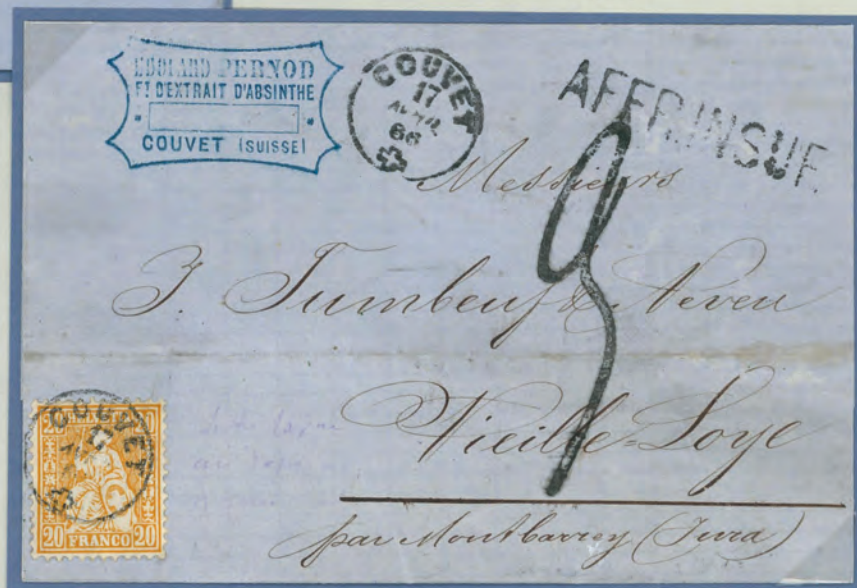 EDOUARD PERNOD
FT D'EXTRAIT D'ABSINTHE
COUVET (SUISSE)
COUVET
17
AVRIL
66
AFFR.INSUF.
9
Messieurs
J. Tumbeuf & Neveu
Vieille-Loye
par Montbarrey (Jura)
COUVET
17
20 20
20 FRANCO 20